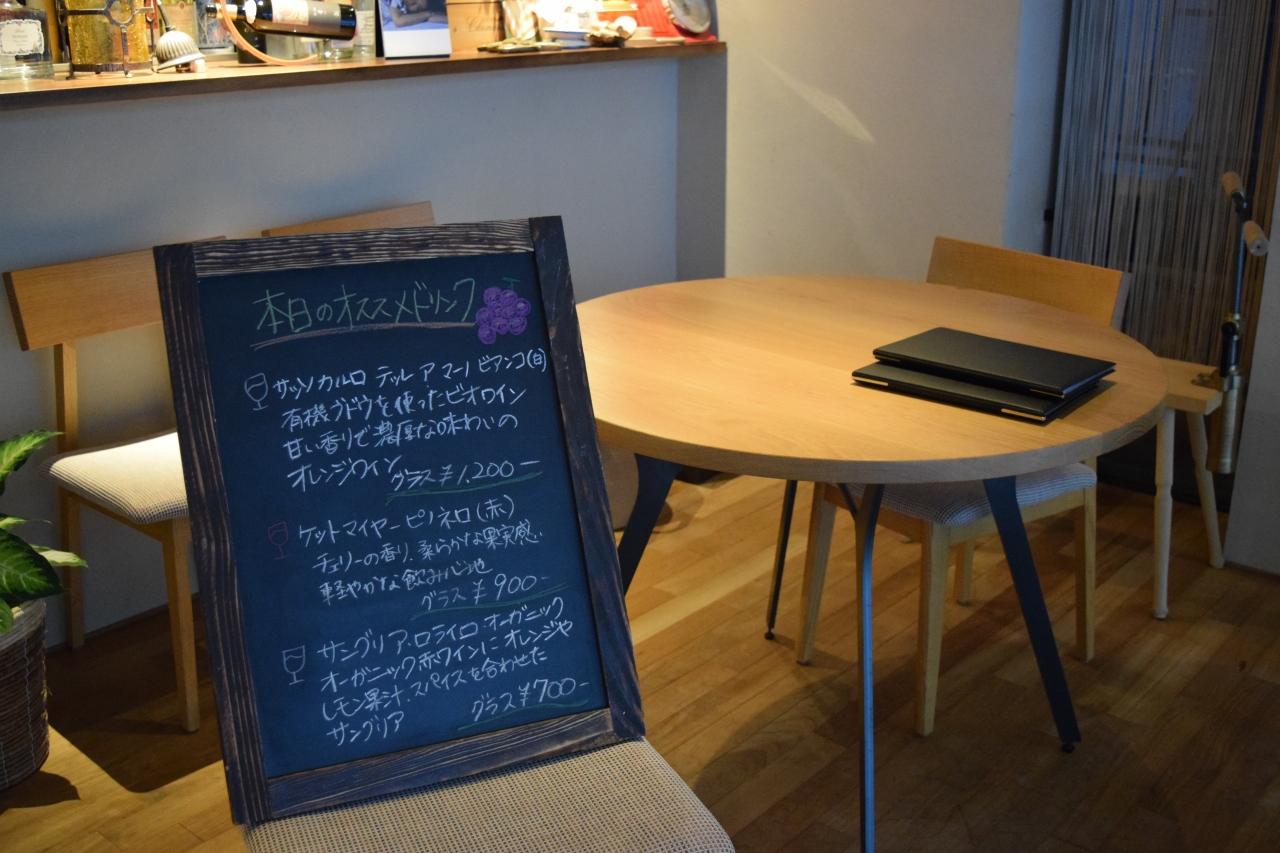 本日のオススメドリンク
サッソ カルロ テッレ ア マーノ ビアンコ(白)
有機ブドウを使ったビオワイン
甘い香りで濃厚な味わいの
オレンジワイン グラス ¥1,200ー
ケットマイヤー ピノネロ(赤)
チェリーの香り、柔らかな果実感
軽やかな飲み心地
グラス ¥900-
サングリア・ロライロ オーガニック
オーガニック赤ワインにオレンジや
レモン果汁、スパイスを合わせた
サングリア グラス¥700-